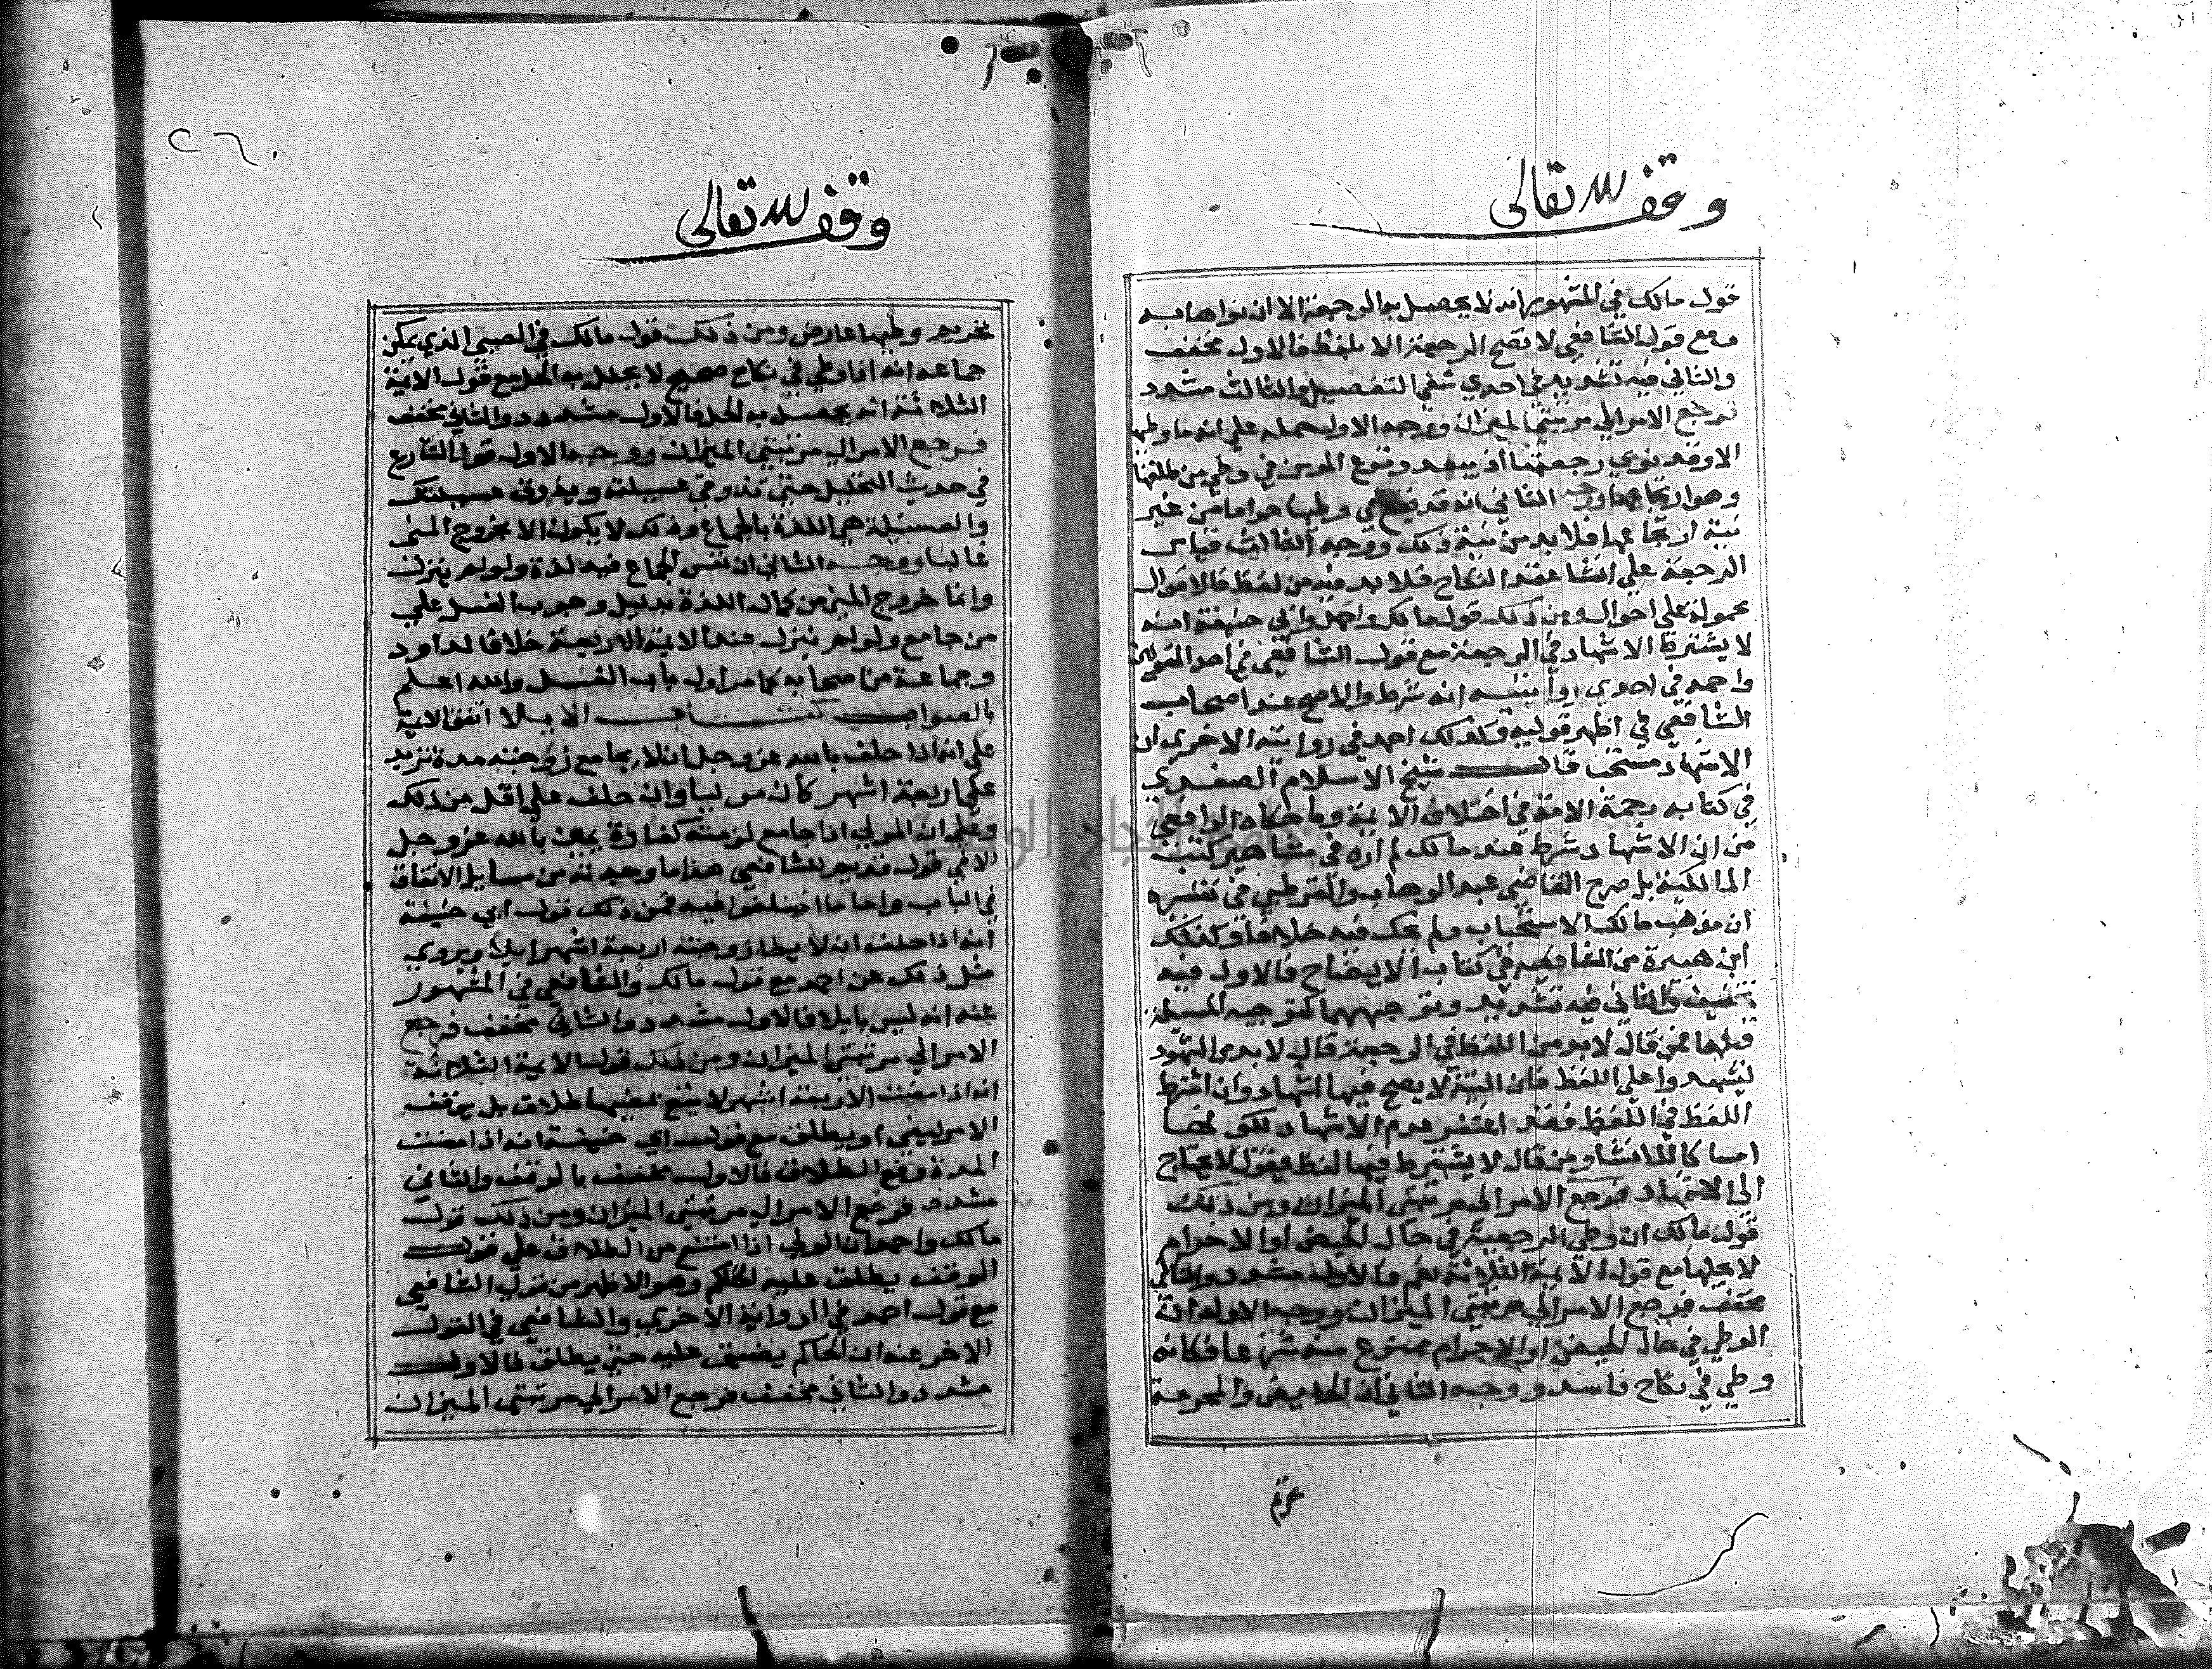 وقف لله تعالى
قول مالك في المشهور انه لا يحصل به الرجعة الا ان نواها به
ومع قول الشافعي لا تصح الرجعة الا بلفظ فالاول مخفف
والثاني فيه تشديد في احدي شقي التفصيل والثالث مشدد
فرجع الامر الي مرتبتي الميزان ووجه الاول حمله علي انه ما وطيها
الا وقد نوي رجعتها اذ يبعد وقوع المومن في وطي من طلقها
وهو ارتجاعها ووجه الثاني انه قد يقع في وطيها حراما من غير
نية ارتجاعها فلا بد من نية ذلك ووجه الثالث قياس
الرجعة علي انشا عقد النكاح فلا بد فيه من لفظ فالاقوال
محمولة علي احوال ومن ذلك قول مالك واحمد وابي حنيفة انه
لا يشترط الاشهاد في الرجعة مع قول الشافعي في احد القولين
واحمد في احدي روايتيه انه شرط والاصح عند اصحاب
الشافعي في اظهر قوليه وكذلك احمد في روايته الاخري ان
الاشهاد مستحب قال شيخ الاسلام الصفدي
في كتابه رحمة الامة في اختلاف الايمة وما حكاه الرافعي
من ان الاشهاد شرط عند مالك لم اره في مشاهير كتب
المالكية بل صرح القاضي عبد الوهاب والقرطبي في تفسيره
ان مذهب مالك الاستحباب ولم يحك فيه خلافا وكذلك
ابن هبيرة من الشافعية في كتاب الايضاح فالاول فيه
تخفيف والثاني فيه تشديد وتوجيههما كتوجيه المسيلة
قبلها فمن قال لا بد من اللفظ في الرجعة قال لا بد من الشهود
ليشهدوا علي اللفظ فان النية لا يصح فيها اشهاد وان اشترط
اللفظ في اللفظ فقد اغتفر عدم الاشهاد لكونها
امساكا لا انشا ومن قال لا يشترط فيها لفظ فيقول لا يحتاج
الي الاشهاد فرجع الامر الي مرتبتي الميزان ومن ذلك
قول مالك ان وطي الرجعية في حال الحيض او الاحرام
لا يحلها مع قول الايمة الثلاثة نعم فالاول مشدد والثاني
مخفف فرجع الامر الي مرتبتي الميزان ووجه الاول ان
الوطي في حال الحيض او الاحرام ممنوع منه شرعا فكانه
وطي في نكاح فاسد ووجه الثاني ان الحايض والمحرمة
٢٦
وقف لله تعالى
تحريم وطيها عارض ومن ذلك قول مالك في الصبي الذي يمكن
جماعه انه اذا وطي في نكاح صحيح لا يحصل به الحل مع قول الايمة
الثلاثة انه يحصل به الحل فالاول مشدد والثاني مخفف
فرجع الامر الي مرتبتي الميزان ووجه الاول قول الشارع
في حديث التحليل حتي تذوقي عسيلته ويذوق عسيلتك
والعسيلة هي اللذة بالجماع وذلك لا يكون الا بخروج المني
غالبا ووجه الثاني ان نفس الجماع فيه لذة ولو لم ينزل
وانما خروج المني من كمال اللذة بدليل وجوب الغسل علي
من جامع ولو لم ينزل عند الايمة الاربعة خلافا لداود
وجماعة من اصحابه كما مر اول باب الغسل والله اعلم
بالصواب كتاب الايلا اتفق الايمة
علي انه اذا حلف بالله عز وجل ان لا يجامع زوجته مدة تزيد
علي اربعة اشهر كان موليا وان حلف علي اقل من ذلك
وعلي ان المولي اذا جامع لزمته كفارة يمين بالله عز وجل
الا في قول قديم للشافعي هذا ما وجدته من مسايل الاتفاق
في الباب واما ما اختلفوا فيه فمن ذلك قول ابي حنيفة
انه اذا حلف ان لا يطا زوجته اربعة اشهر ايلا ويروي
مثل ذلك عن احمد مع قول مالك والشافعي في المشهور
عنه انه ليس بايلا فالاول مشدد والثاني مخفف فرجع
الامر الي مرتبتي الميزان ومن ذلك قول الايمة الثلاثة
انه اذا مضت الاربعة اشهر لا يقع بمضيها طلاق بل يوقف
الامر ليفي او يطلق مع قول ابي حنيفة انه اذا مضت
المدة وقع الطلاق فالاول مخفف بالوقف والثاني
مشدد فرجع الامر الي مرتبتي الميزان ومن ذلك قول
مالك واحمد ان المولي اذا امتنع من الطلاق علي قول
الوقف يطلق عليه الحاكم وهو الاظهر من قول الشافعي
مع قول احمد في الرواية الاخري والشافعي في القول
الاخر عنه ان الحاكم يضيق عليه حتي يطلق فالاول
مشدد والثاني مخفف فرجع الامر الي مرتبتي الميزان